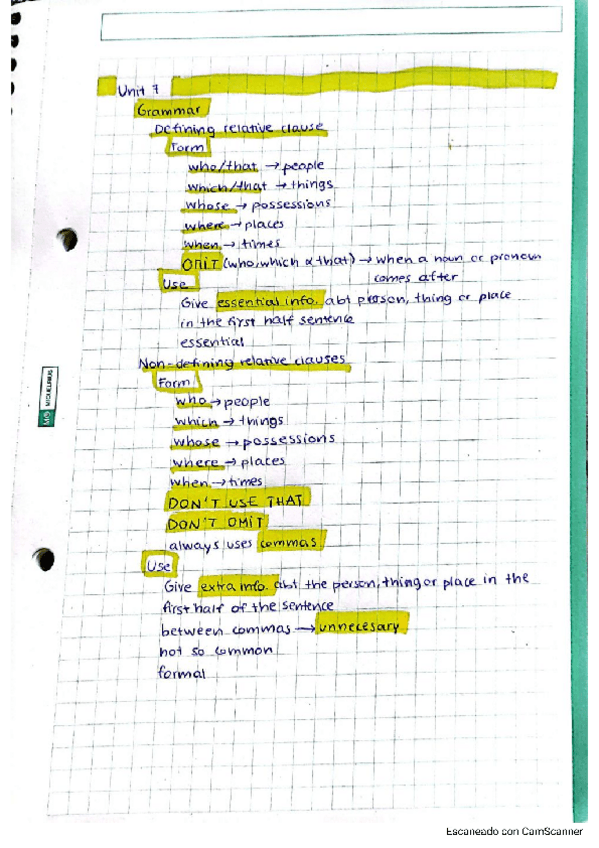 Unit 7
Grammar
Defining relative clause
Form
who/that → people
which/that → things
whose → possessions
where → places
when → times
OMIT (who, which & that) → when a noun or pronoun
comes after
Use
Give essential info. abt person, thing or place
in the first half sentence
essential
Non-defining relative clauses
Form
who → people
which → things
whose → possessions
where → places
when → times
DON'T USE THAT
DON'T OMIT
always uses commas
Use
Give extra info. abt the person, thing or place in the
first half of the sentence
between commas → unnecesary
not so common
formal
MIQUELRIUS
Escaneado con CamScanner